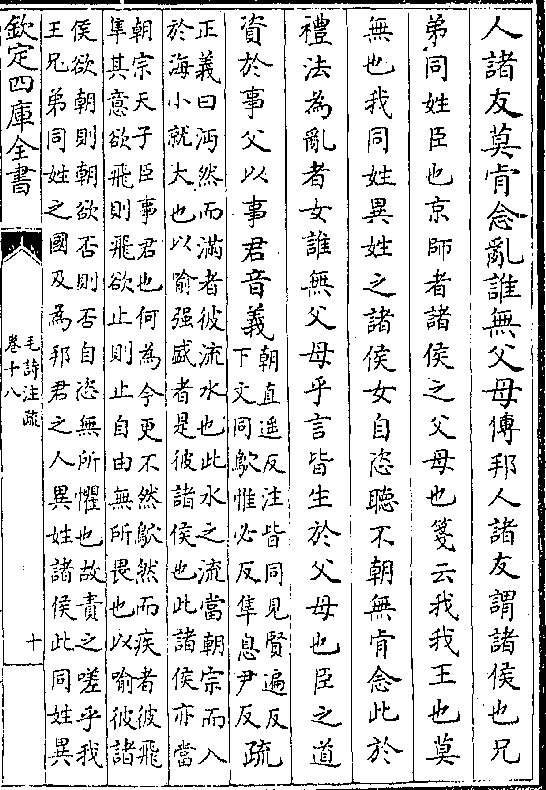 人諸友莫肯念亂誰無父母傳邦人諸友謂諸侯也兄
弟同姓臣也京師者諸侯之父母也箋云我我王也莫
無也我同姓異姓之諸侯女自恣聽不朝無肯念此於
禮法為亂者女誰無父母乎言皆生於父母也臣之道
資於事父以事君音義朝直遥反注皆同見賢遍反
下文同鴥惟必反隼息尹反疏
正義曰沔然而滿者彼流水也此水之流當朝宗而入
於海小就大也以喻强盛者是彼諸侯也此諸侯亦當
朝宗天子臣事君也何為今更不然鴥然而疾者彼飛
隼其意欲飛則飛欲止則止自由無所畏也以喻彼諸
侯欲朝則朝欲否則否自恣無所懼也故責之嗟乎我
王兄弟同姓之國及為邦君之人異姓諸侯此同姓異
欽定四庫全書
毛詩注疏
卷十八
十